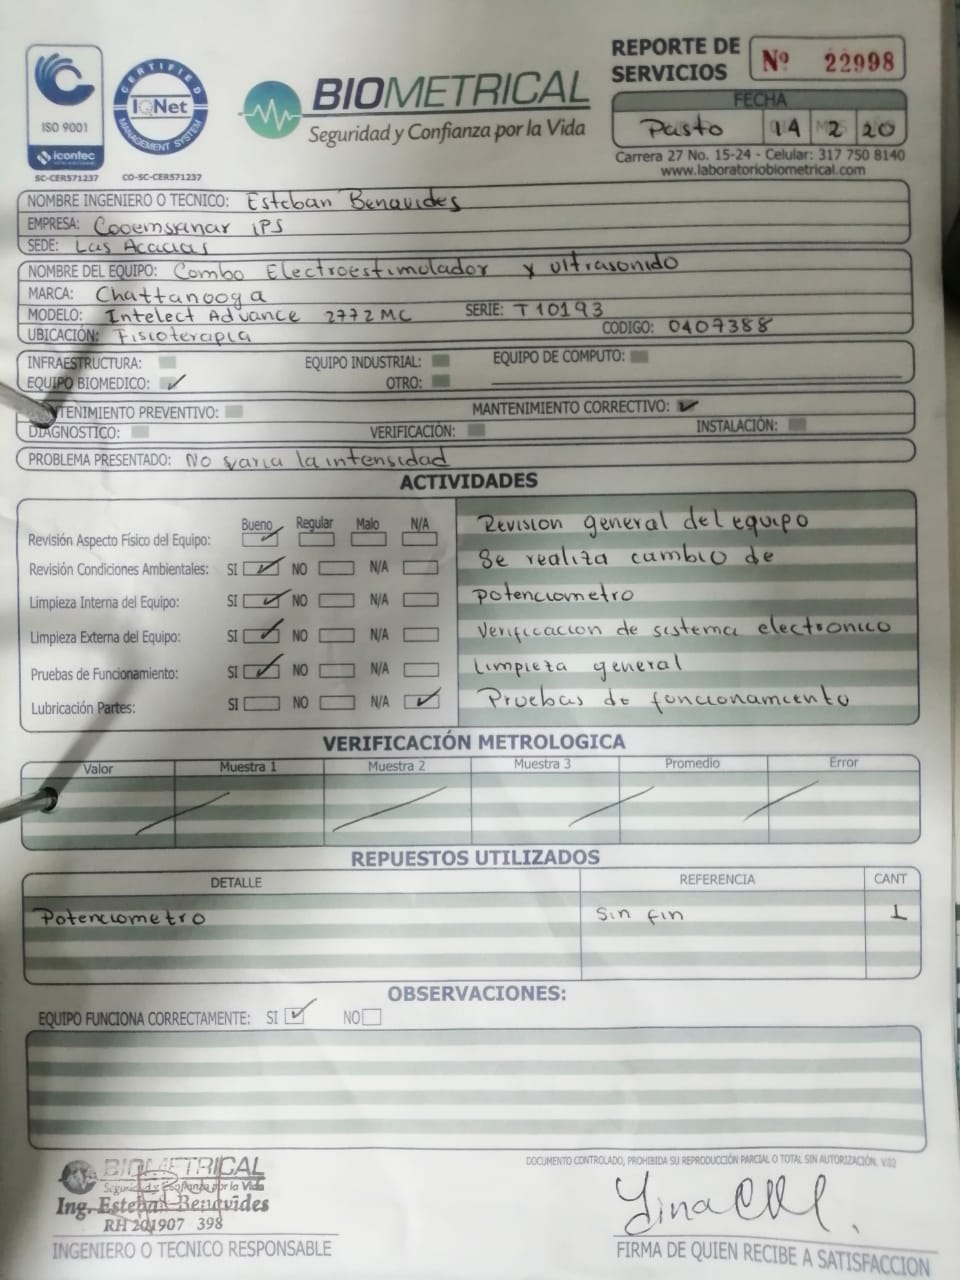 REPORTE DE SERVICIOS Nº 22998
ISO 9001
icontec
SC-CER571237
CERTIFIED
IQNet
MANAGEMENT SYSTEM
CO-SC-CER571237
BIOMETRICAL
Seguridad y Confianza por la Vida
FECHA
Pasto 14 2 20
Carrera 27 No. 15-24 - Celular: 317 750 8140
www.laboratoriobiometrical.com
NOMBRE INGENIERO O TECNICO: Esteban Benavides
EMPRESA: Cooemssanar iPS
SEDE: Las Acacias
NOMBRE DEL EQUIPO: Combo Electroestimolador y ultrasonido
MARCA: Chattanooga
MODELO: Intelect Advance 2772MC SERIE: T10193
UBICACIÓN: Fisioterapia CODIGO: 0407388
INFRAESTRUCTURA: EQUIPO INDUSTRIAL: EQUIPO DE COMPUTO:
EQUIPO BIOMEDICO: ✓ OTRO:
TENIMIENTO PREVENTIVO: MANTENIMIENTO CORRECTIVO: ✓
DIAGNOSTICO: VERIFICACIÓN: INSTALACIÓN:
PROBLEMA PRESENTADO: No varia la intensidad
ACTIVIDADES
Bueno Regular Malo N/A
Revisión Aspecto Físico del Equipo: ✓
Revisión Condiciones Ambientales: SI ✓ NO N/A
Limpieza Interna del Equipo: SI ✓ NO N/A
Limpieza Externa del Equipo: SI ✓ NO N/A
Pruebas de Funcionamiento: SI ✓ NO N/A
Lubricación Partes: SI NO N/A ✓
Revision general del equipo
Se realiza cambio de
potenciometro
Verificacion de sistema electronico
Limpieza general
Pruebas de foncionamiento
VERIFICACIÓN METROLOGICA
Valor Muestra 1 Muestra 2 Muestra 3 Promedio Error
REPUESTOS UTILIZADOS
DETALLE REFERENCIA CANT
Potenciometro Sin fin 1
OBSERVACIONES:
EQUIPO FUNCIONA CORRECTAMENTE: SI ✓ NO
DOCUMENTO CONTROLADO, PROHIBIDA SU REPRODUCCIÓN PARCIAL O TOTAL SIN AUTORIZACIÓN. V.02
BIOMETRICAL
Seguridad y Confianza por la Vida
Ing. Esteban Benavides
RH 201907 398
INGENIERO O TECNICO RESPONSABLE
FIRMA DE QUIEN RECIBE A SATISFACCION